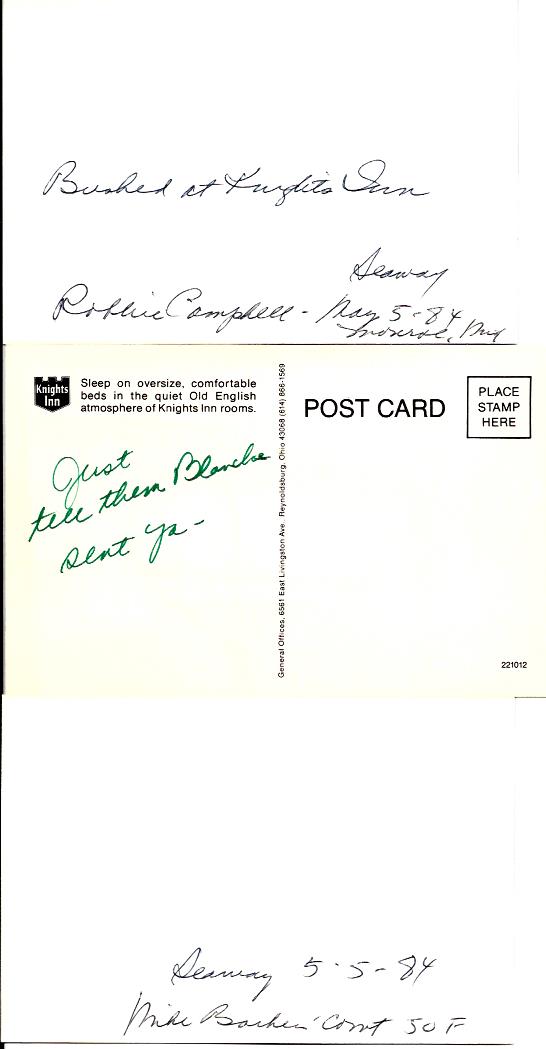 Bushed at Knights Inn
Seaway
Robbie Campbell - May 5-84
Monroe, Mich
Knights
Inn
Sleep on oversize, comfortable
beds in the quiet Old English
atmosphere of Knights Inn rooms.
General Offices, 6561 East Livingston Ave. Reynoldsburg, Ohio 43068 (614) 866-1569
POST CARD
PLACE
STAMP
HERE
Just
tell them Blanche
sent ya-
221012
Seaway 5-5-84
Mike